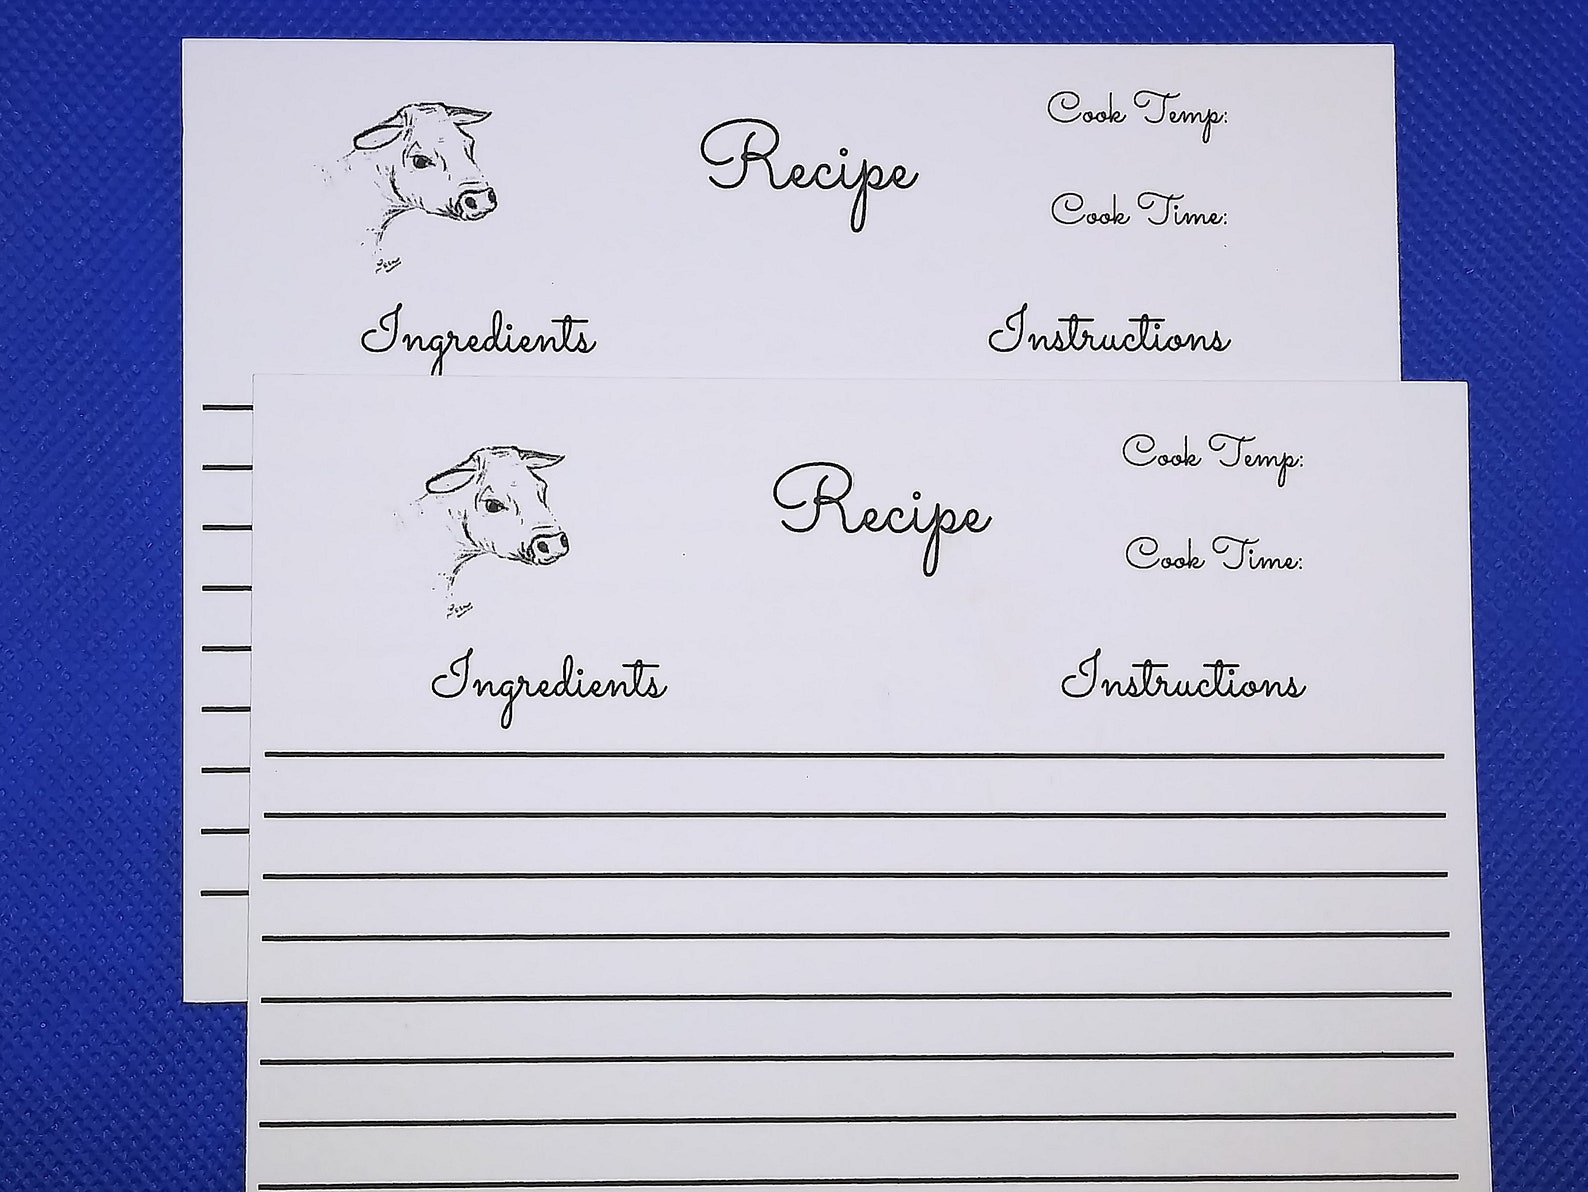 Recipe
Cook Temp:
Cook Time:
Ingredients
Instructions
Recipe
Cook Temp:
Cook Time:
Ingredients
Instructions